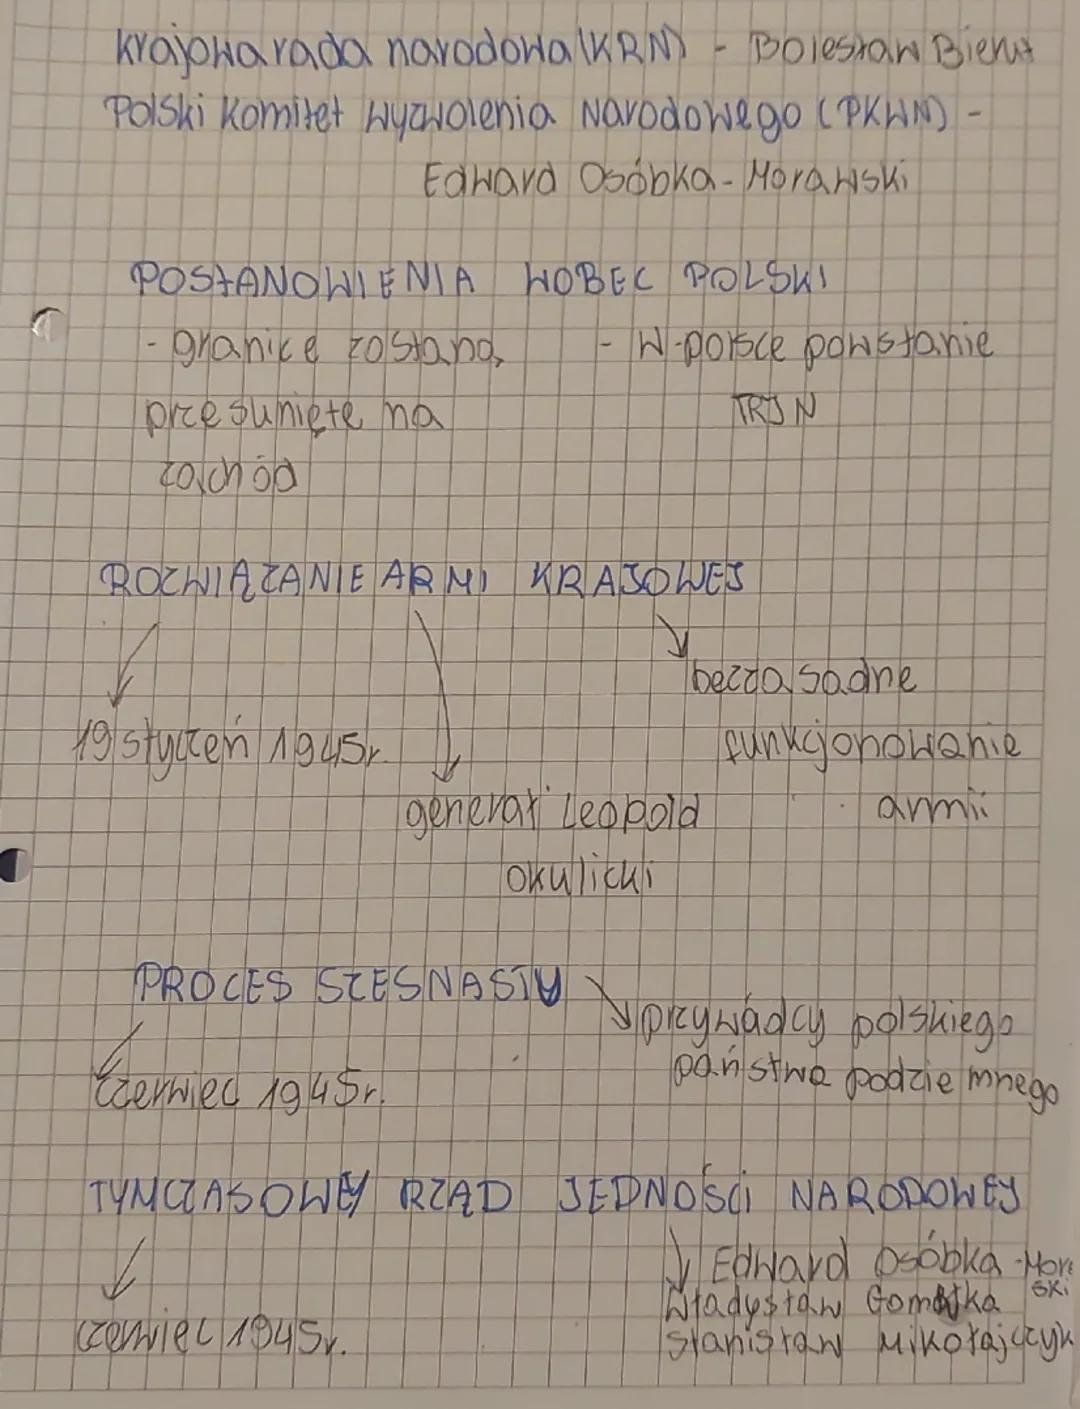 krajowa rada narodowa (KRN) - Bolesław Bierut
Polski Komitet Wyzwolenia Narodowego (PKWN) -
Edward Osóbka-Morawski
POSTANOWIENIA WOBEC POLSKI
- granice zostaną
przesunięte na
zachód
- w polsce powstanie
TRJN
ROZWIĄZANIE ARMI KRAJOWEJ
19 styczeń 1945r.
generał Leopold
Okulicki
bezzasadne
funkcjonowanie
armii
PROCES SZESNASTU
czerwiec 1945r.
przywódcy polskiego
państwa podziemnego
TYMCZASOWY RZĄD JEDNOŚCI NARODOWEJ
czerwiec 1945r.
Edward Osóbka-Mora
ski
Władysław Gomółka
Stanisław Mikołajczyk